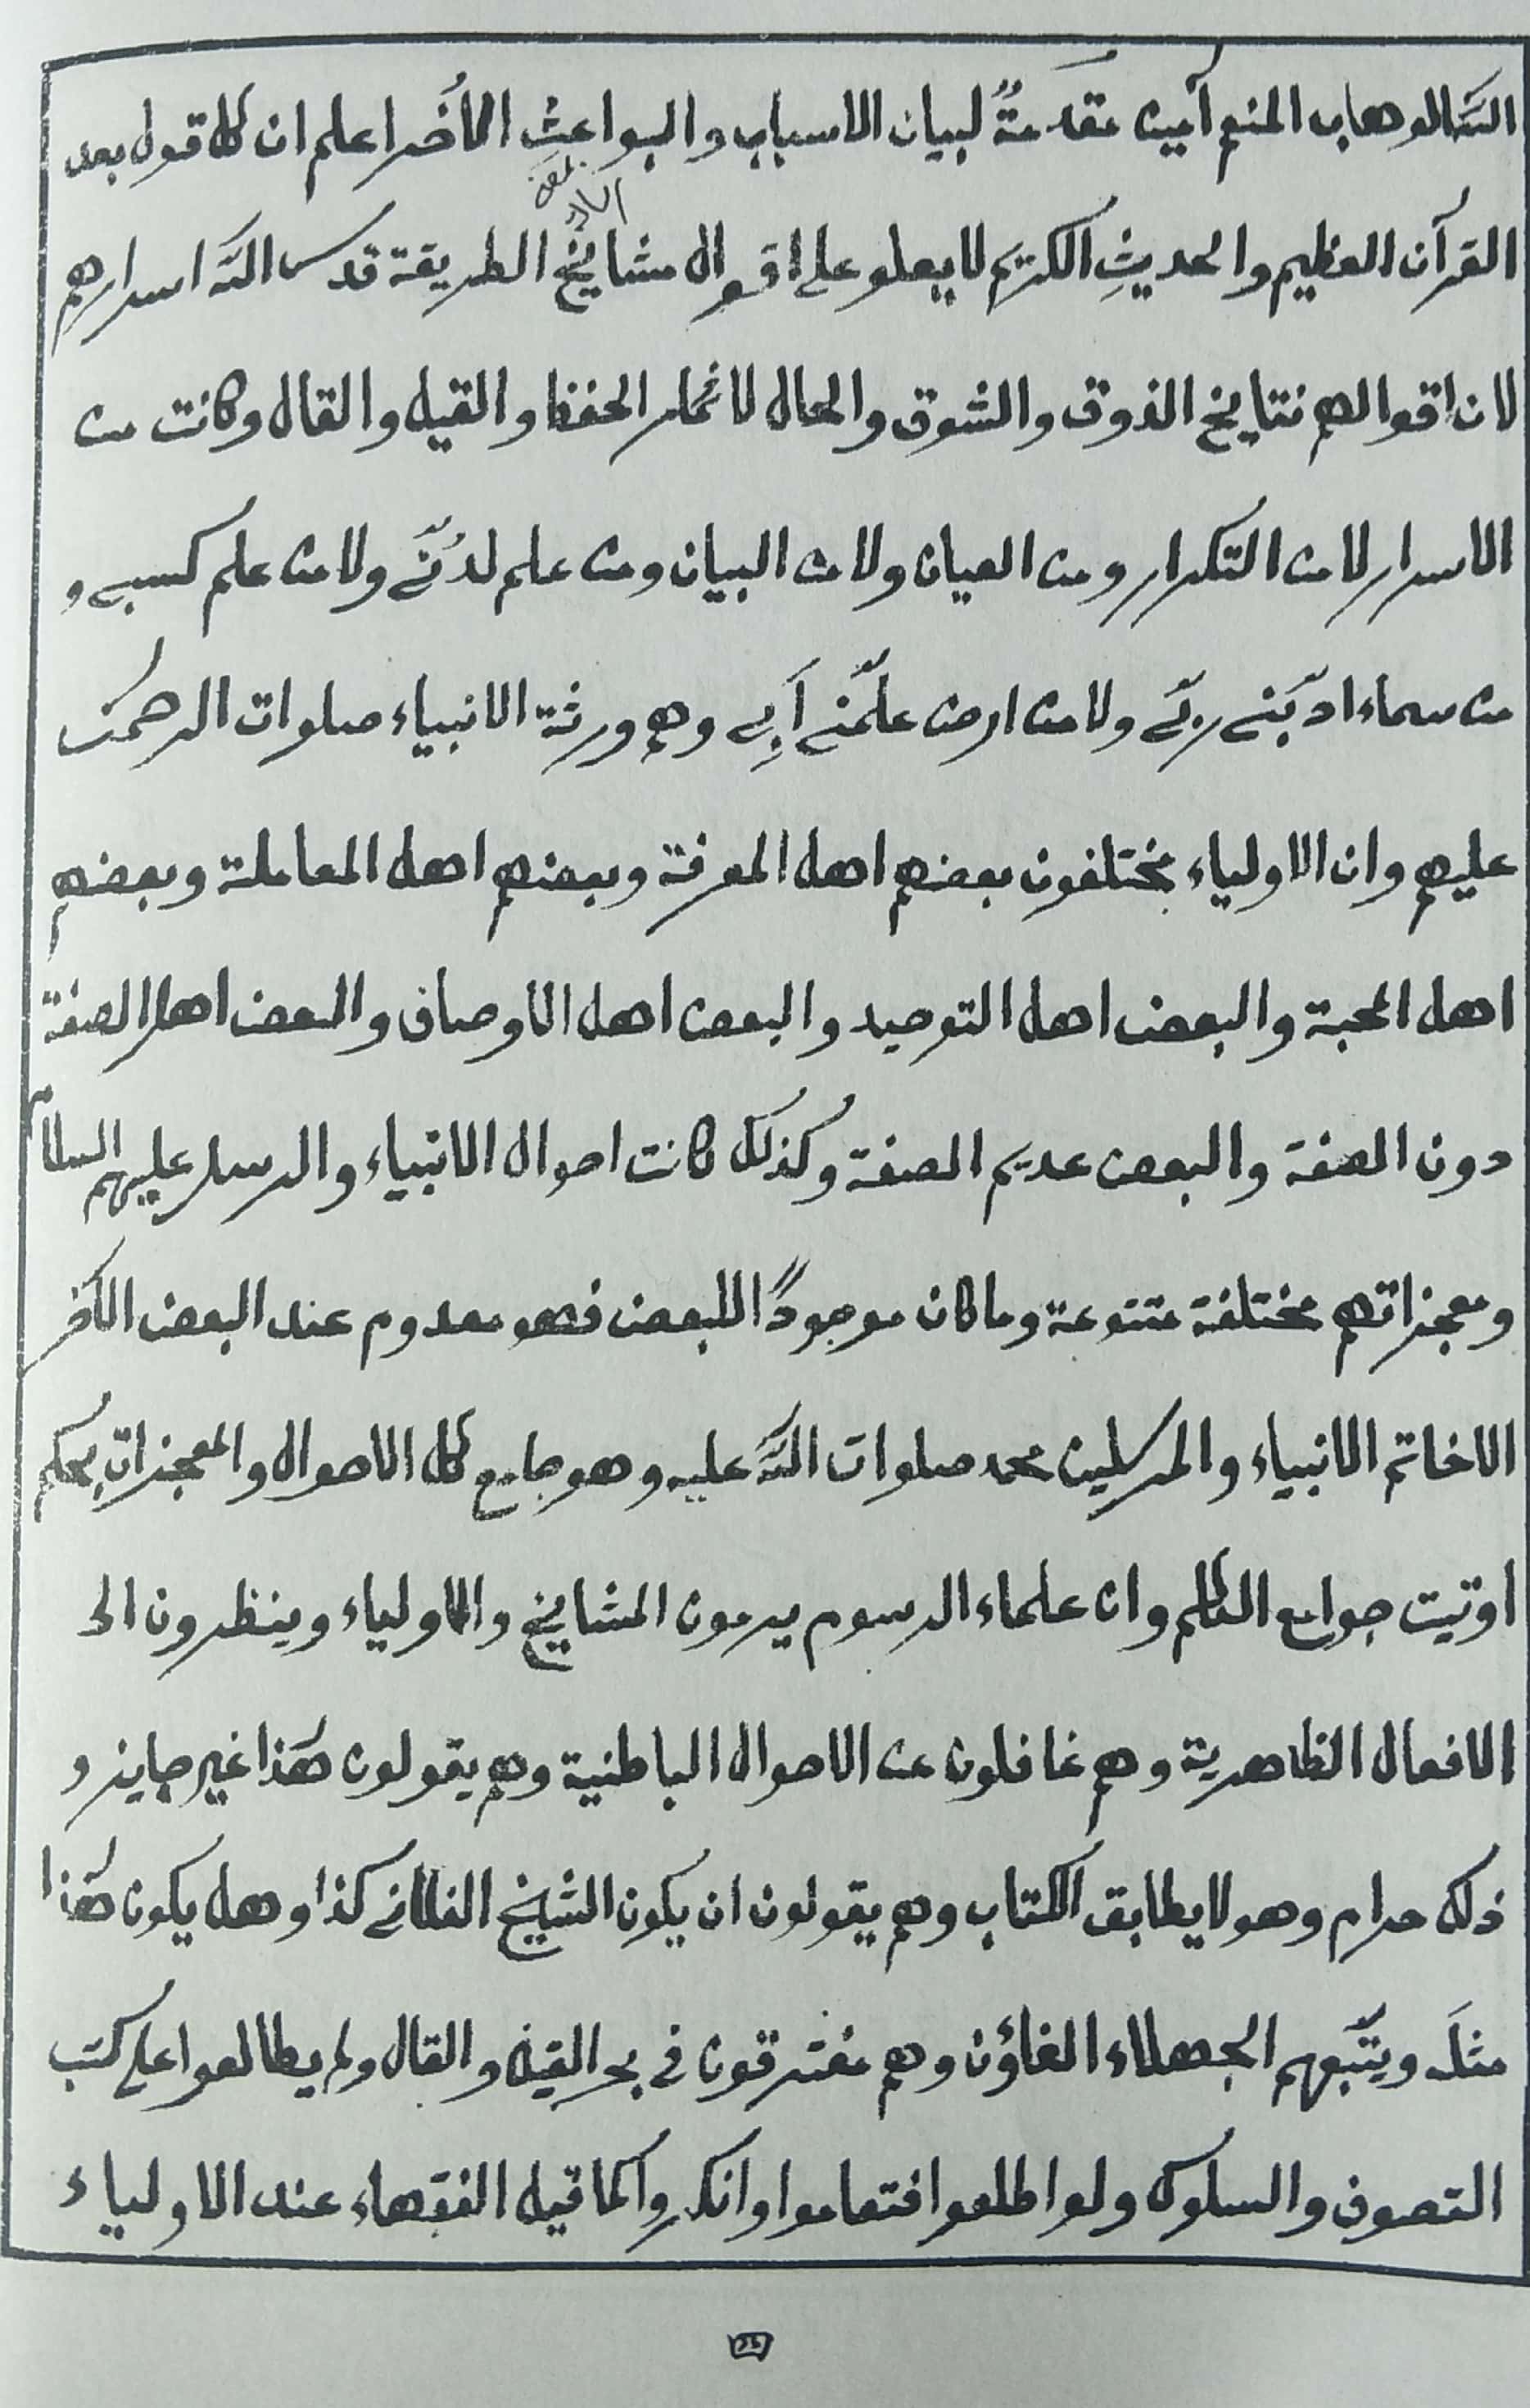 اللّٰه الوهاب المنعم آمين مقدمةٌ لبيان الاسباب والبواعثِ الأُخر اعلم ان كل قول بعد
القرآن العظيم والحديثِ الكريم لا يعلو على اقوال مشايخ الطريقة قدس اللّٰه اسرارهم
لان اقوالهم نتايخ الذوق والشوق والحال لا ثمار الحفظ والقيل والقال وكانت من
الاسرار لا من التكرار ومن العيان ولا من البيان ومن علم لدُنّي ولا من علم كسبي و
من سماء ادّبَني ربّي ولا من ارض علّمني اَبِي وهم ورثة الانبياء صلوات الرحمٰن
عليهم وان الاولياء مختلفون بعضهم اهل المعرفة وبعضهم اهل المعاملة وبعضهم
اهل المحبة والبعض اهل التوحيد والبعض اهل الاوصاف والبعض اهل الصفة
دون الصفة والبعض عديم الصفة وكذلك كانت احوال الانبياء والرسل عليهم السلام
ومعجزاتهم مختلفة متنوعة وما كان موجودًا للبعض فهو معدوم عند البعض الآخر
الا خاتم الانبياء والمرسلين محمد صلوات اللّٰه عليه وهو جامع كل الاحوال والمعجزاتِ بحكم
اوتيت جوامع الكلم وان علماء الرسوم يرمون المشايخ والاولياء وينظرون الى
الافعال الظاهرية وهم غافلون عن الاحوال الباطنية وهم يقولون هٰذا غير جايز و
ذلك حرام وهو لا يطابق الكتاب وهم يقولون ان يكون الشيخ الفلاني كذا وهل يكون هٰذا
مثلَه ويتّبعهم الجهلاء الغاؤن وهم مغترقون في بحر القيل والقال ولم يطالعوا على كتب
التصوف والسلوك ولو اطلعوا فتعاموا وانكروا كما قيل الفقهاء عند الاولياء